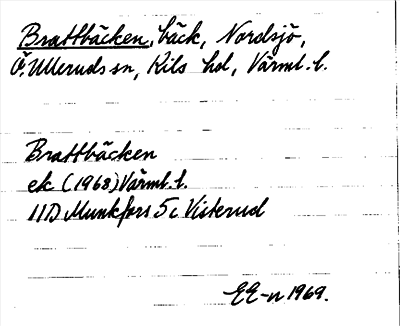 Brattbäcken, bäck, Nordsjö,
Ö. Ulleruds sn, Kils hd, Värml. l.
Brattbäcken
ek (1968) Värml. l.
11D Munkfors 5c Visterud
EE-n 1969.